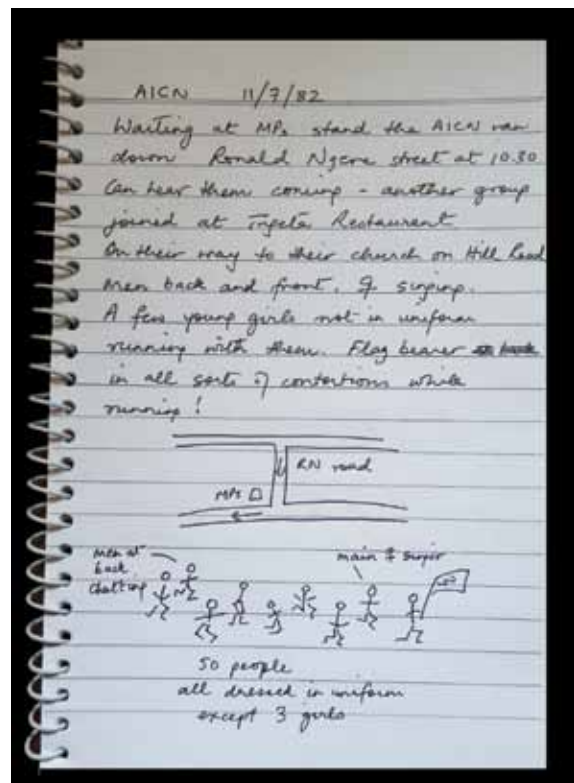 AICN 11/7/82
Waiting at MPs stand the AICN ran
down Ronald Ngere street at 10.30
Can hear them coming - another group
joined at Restaurant
On their way to their church on Hill Road
Men back and front. ♀ singing.
A few young girls not in uniform
running with them. Flag bearer
in all sorts of contortions while
running!
RN road
MPs
men at
back
chatting
main ♀
50 people
all dressed in uniform
except 3 girls